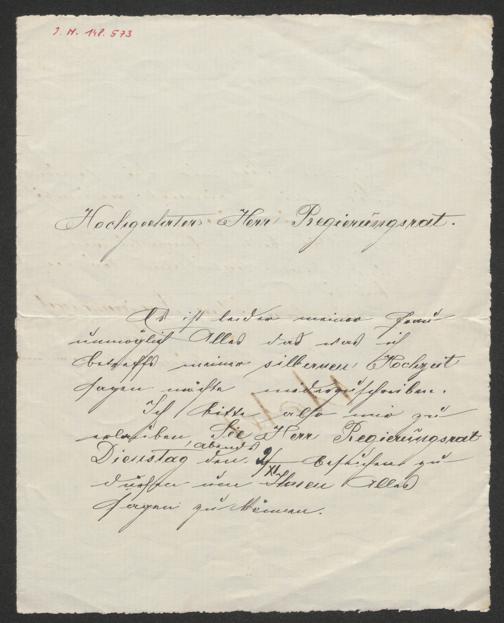 J. N. 148.573
Hochgeehrter Herr Regierungsrat.
Es ist leider meiner Frau
unmöglich Alles das was ich
betreffs meiner silbernen Hochzeit
sagen möchte niederzuschreiben.
Ich bitte also mir zu
erlauben, Sie Herr Regierungsrat
abends
Dienstag den 9/XI besuchen zu
dürfen um Ihnen Alles
sagen zu können.